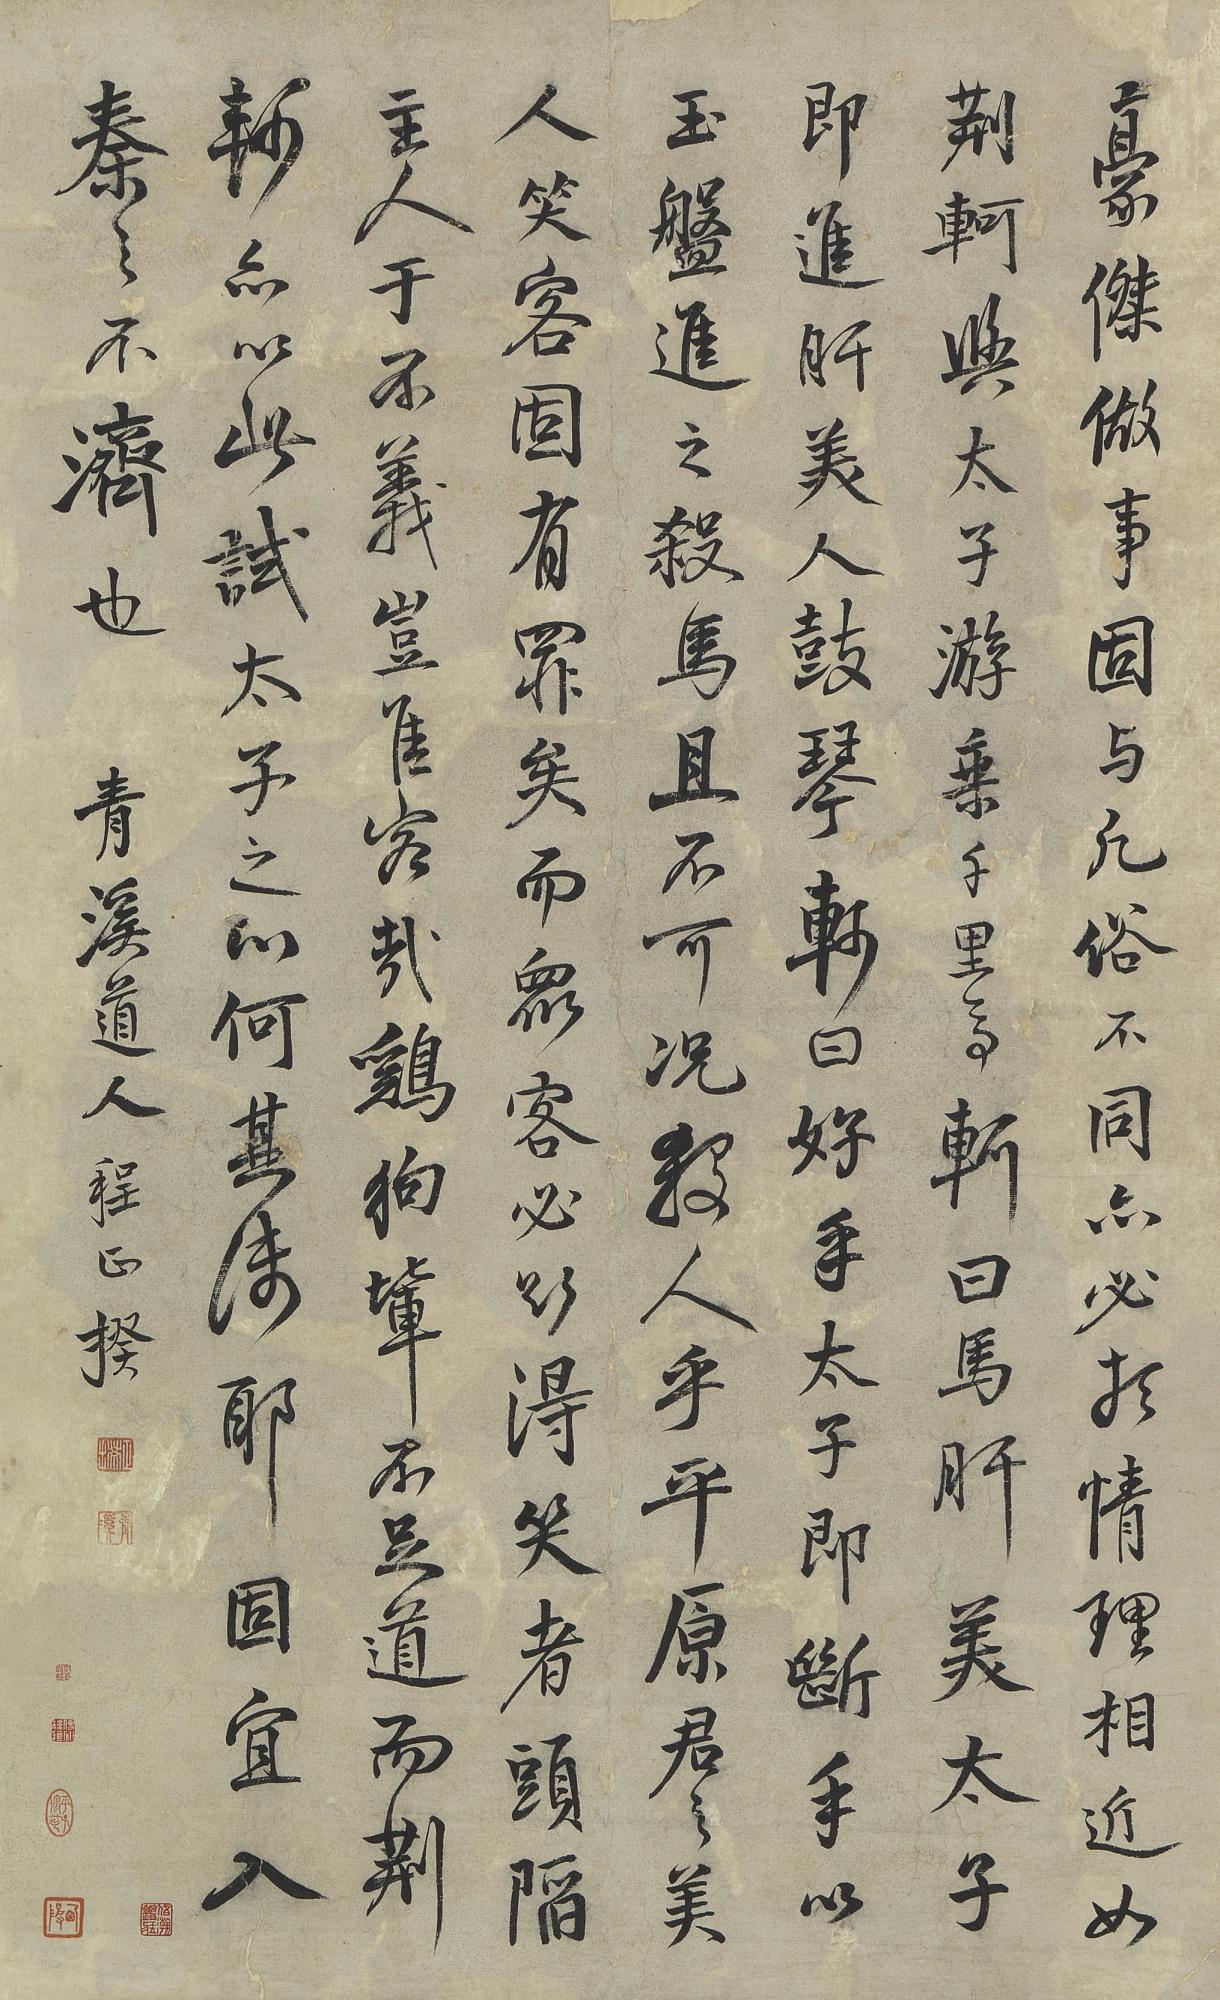 豪傑做事固与凡俗不同亦必於情理相近如
荆軻與太子游乗千里馬軻曰馬肝美太子
即進肝美人鼓琴軻曰好手太子即斷手以
玉盤進之殺馬且不可况殺人乎平原君之美
人笑客固有罪矣而衆客必欲得笑者頭陷
主人于不義豈隹客哉鷄狗輩不足道而荆
軻亦以此試太子之心何其淺耶固宜入
秦之不濟也 青溪道人程正揆